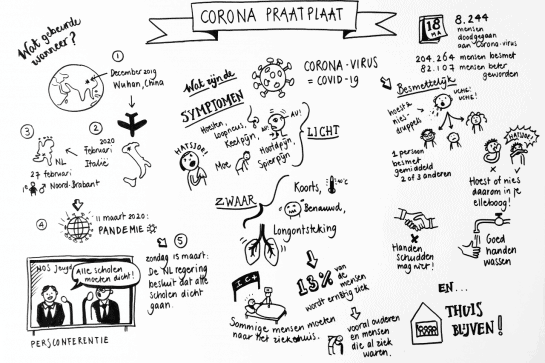 CORONA PRAATPLAAT
Wat gebeurde
wanneer?
1
December 2019
Wuhan, China
3
2
2020
Februari
Italië
NL
27 februari
Noord-Brabant
4
11 maart 2020:
PANDEMIE
5
zondag 15 maart:
De NL regering
besluit dat alle
scholen dicht
gaan.
NOS Jeugd
Alle scholen
moeten dicht!
PERSCONFERENTIE
Wat zijn de
SYMPTOMEN
CORONA-VIRUS
= COVID-19
Hoesten,
loopneus,
Keelpijn,
AU!
AU!
Hoofdpijn,
Spierpijn
LICHT
HATSJOE!
Moe
ZWAAR
Koorts,
Benauwd,
Longontsteking
I.C.
13%
van
de
mensen
wordt ernstig ziek
Sommige mensen moeten
naar het ziekenhuis.
vooral ouderen
en mensen
die al ziek
waren.
18
8.244
mensen
doodgegaan
aan Corona-virus
204.264 mensen besmet
82.107 mensen beter
geworden
Besmettelijk
UCHE!
UCHE!
hoest &
nies-
druppels
1 persoon
besmet
gemiddeld
2 of 3 anderen
HATSJOE!
Hoest of nies
daarom in je
elleboog!
Handen
schudden
mag niet!
Goed
handen
wassen
EN...
THUIS
BLIJVEN!